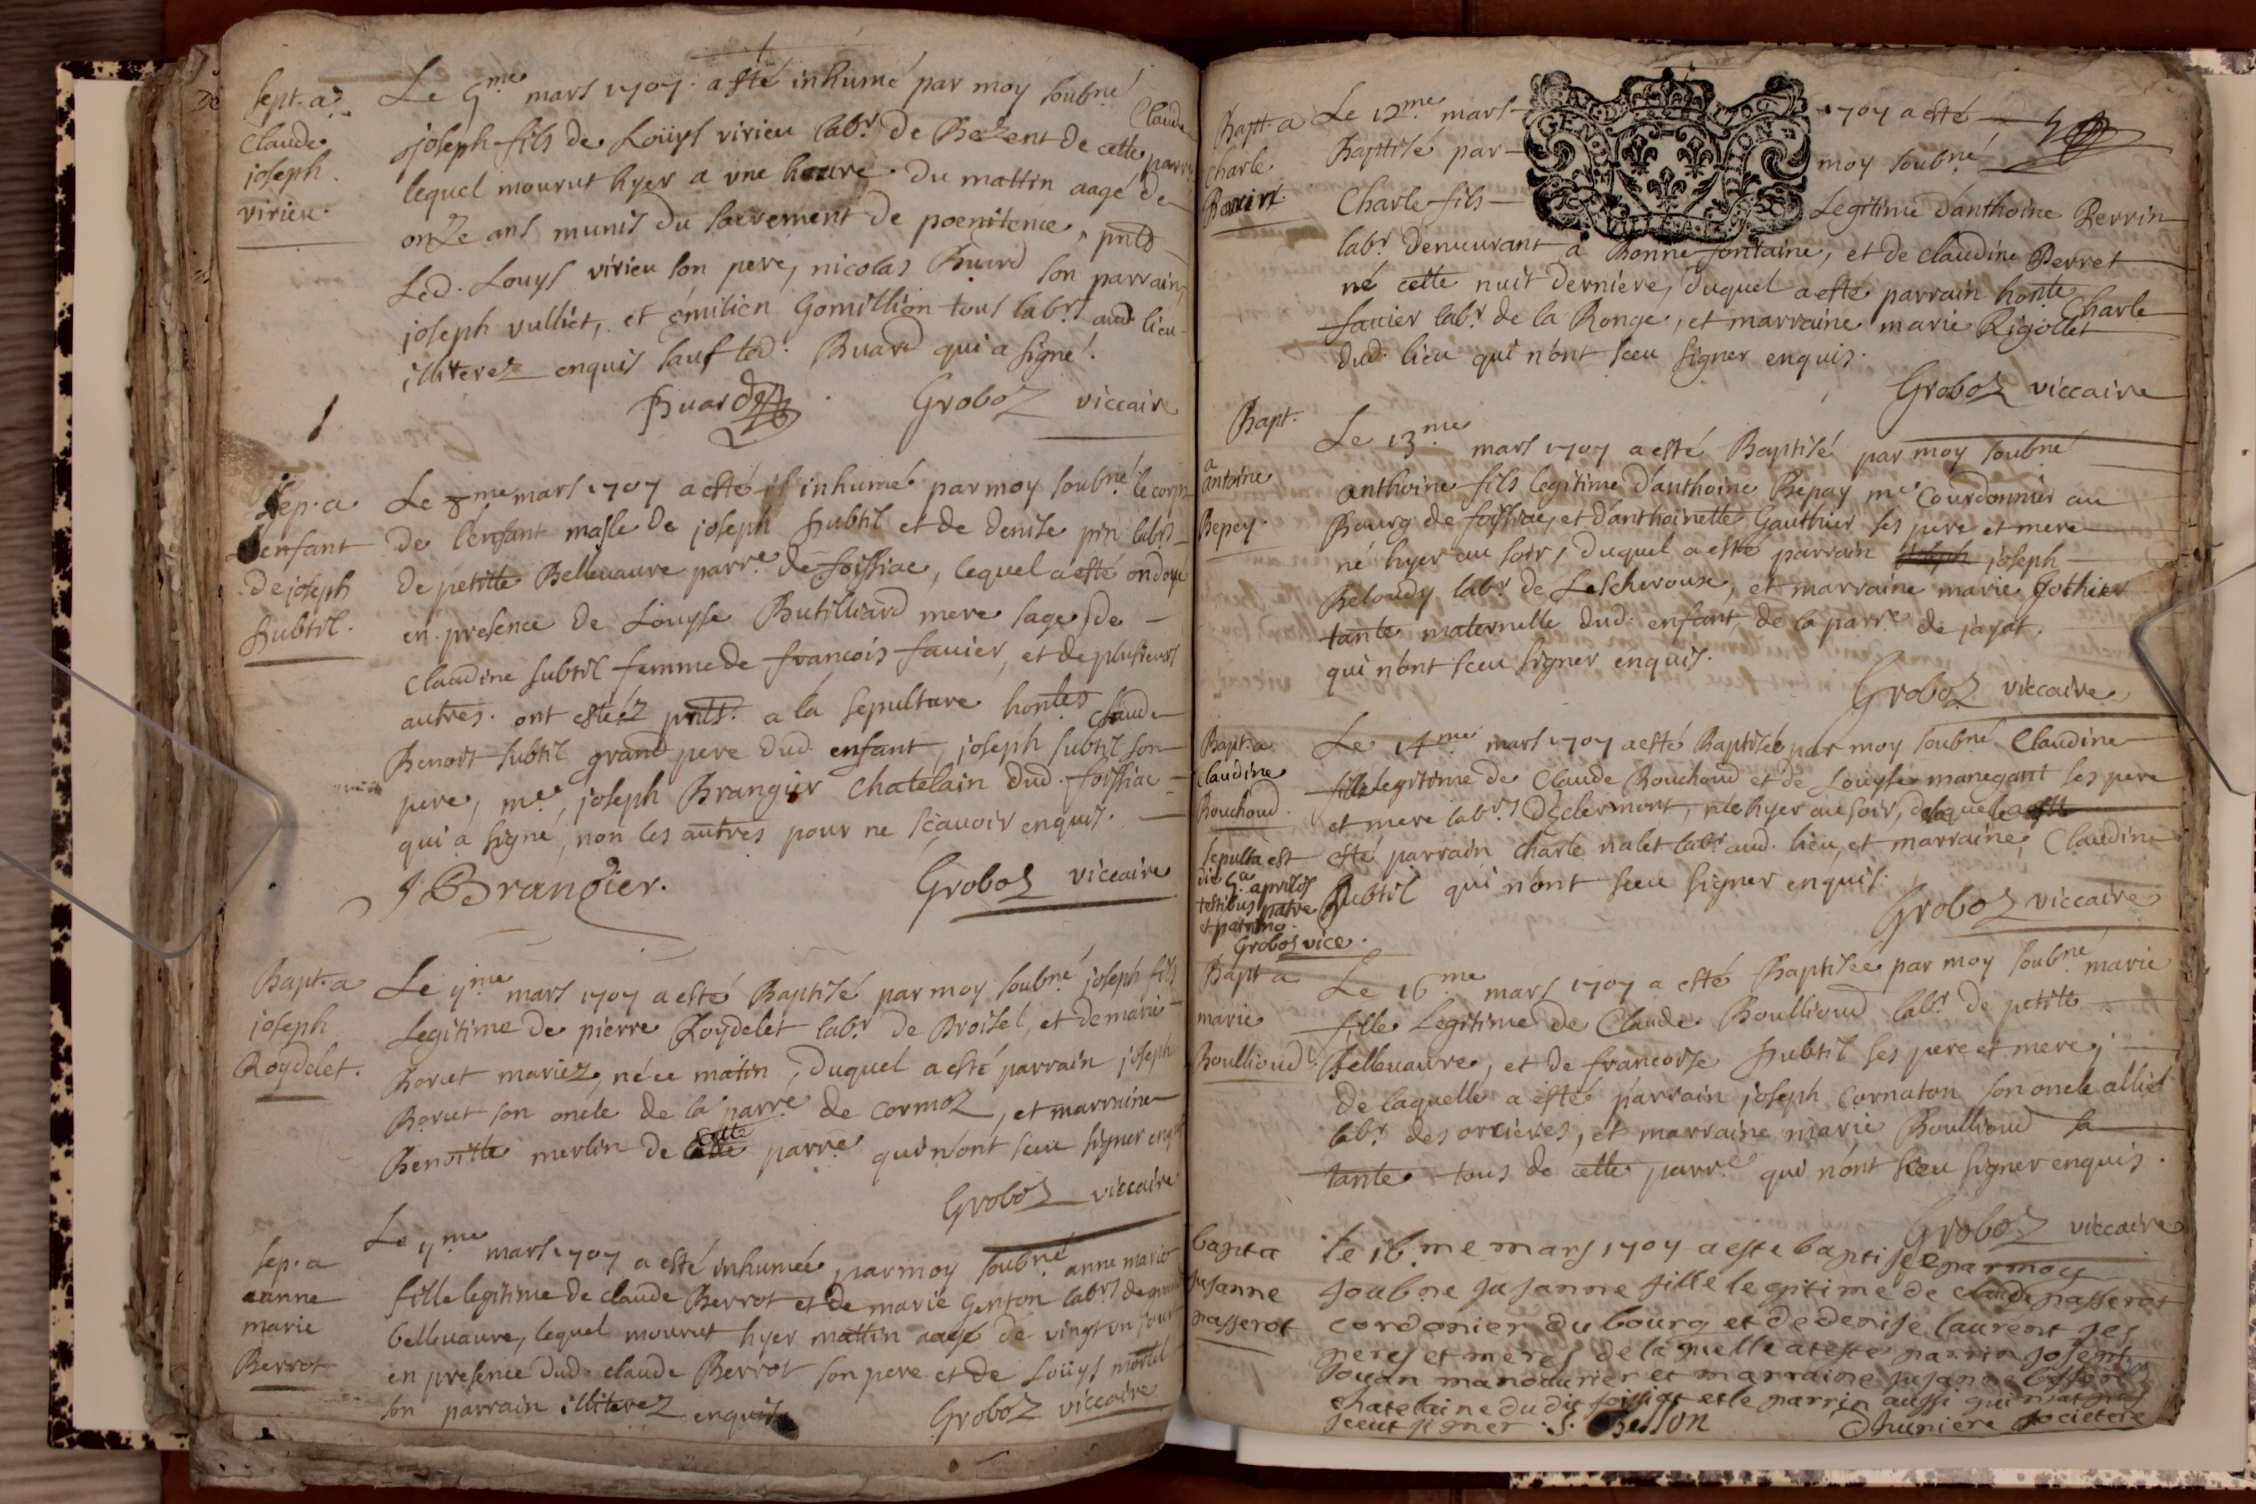 Sept. a
Claude
joseph
virieu.
Le 5me mars 1707. a esté inhumé par moy soubné Claude
joseph fils de Loüys virieu labr de Bezent de cette parre
lequel mourut hyer a vne heure du mattin aagé de
onze ans munis du sacrement de poenitence, pnts
Led. Louys virieu son pere, nicolas Buard son parrain,
joseph vulliet, et émilien Gomillion tous labrs aud lieu
illiterez enquis sauf led. Buard qui a signé.
Buard Groboz viccaire
Sep. a
l'enfant
de joseph
Subtil.
Le 8me mars 1707 a esté inhumé par moy soubné le corps
de l'enfant masle de joseph Subtil et de denise pin labrs
de petitte Bellevaure parre de foissiac, lequel a esté ondoyé
en presence de Louyse Butilliard mere sage, de
Claudine subtil femme de francois favier, et de plusieurs
autres. ont estéz pnts. a la sepulture hontes Claude
Benoit subtil grand pere dud enfant, joseph subtil son
pere, me, joseph Brangier Chatelain dud. foissiac
qui a signé, non les autres pour ne sçauoir enquis.
J Brangier. Groboz viccaire
Bapt. a
joseph
Roydelet.
Le 9me mars 1707 a esté Baptisé par moy soubné joseph fils
legitime de pierre Roydelet labr de Broisel, et de marie
Borut mariez, né ce matin, duquel a esté parrain joseph
Borut son oncle de la parre de cormoz, et marraine
Benoitte merlin de cette parre qui n'ont sceu signer enquis
Groboz viccaire
Sep. a
anne
marie
Berrot
Le 9me mars 1707 a esté inhumée par moy soubné anne marie
fille legitime de claude Berrot et de marie Genton labrs de
bellevaure, lequel mourut hyer mattin aagé de vingt vn jour
en presence dud claude Berrot son pere et de Loüys
son parrain illiterez enquis Groboz viccaire
Bapt. a
charle
Perrin
Le 12me mars 1707 a esté
Baptisé par moy soubné
Charle fils Legitime d'anthoine Perrin
labr demeurant a Bonne fontaine, et de claudine Perret
né cette nuit derniere, duquel a esté parrain honte Charle
favier labr de la Ronge, et marraine marie Rigollet
dud. lieu qui n'ont sceu signer enquis.
Groboz viccaire
Bapt.
a
antoine
Bepey.
Le 13me mars 1707 a esté Baptisé par moy soubné
anthoine fils legitime d'anthoine Bepay me Courdonnier au
Bourg de foissiac, et d'anthoinette Gauthier ses pere et mere
né hyer au soir, duquel a esté parrain joseph
Beloudy labr de Lescheroux, et marraine marie Gothier
tante maternelle dud. enfant, de la parre de jayat,
qui n'ont sceu signer enquis.
Groboz viccaire
Bapt. a
Claudine
Bouchoud.
Sepulta est
die 5a aprilis
testibus patre
et patrino.
Groboz vice.
Le 14me mars 1707 a esté Baptisée par moy soubné Claudine
fille legitime de Claude Bouchoud et de Louyse manegant ses pere
et mere labrs de clermont, née hyer au soir, de laquelle a
esté parrain charle nalet labr aud. lieu, et marraine, Claudine
Subtil qui n'ont sceu signer enquis.
Groboz viccaire
Bapt a
marie
Boullioud.
Le 16me mars 1707 a esté Baptisée par moy soubné marie
fille Legitime de Claude Boullioud labr. de petite
Bellevaure, et de francoise Subtil ses pere et mere,
de laquelle a esté parrain joseph Cornaton son oncle allié
labr des orcieres, et marraine marie Boullioud sa
tante tous de cette parre qui n'ont sceu signer enquis.
Groboz viccaire
bapt a
susanne
passerot
le 16.me mars 1707 a este baptisee par moy
soubne susanne fille legitime de claude passerot
cordonier du bourg et de denise laurent ses
peres et meres de laquelle a este parrin joseph
Jouan manouurier et marraine susanne
chatelaine du dit foissiat et le parrin aussi qui n'ont pas
sceut signer : S. Besson
Dhumiere societere